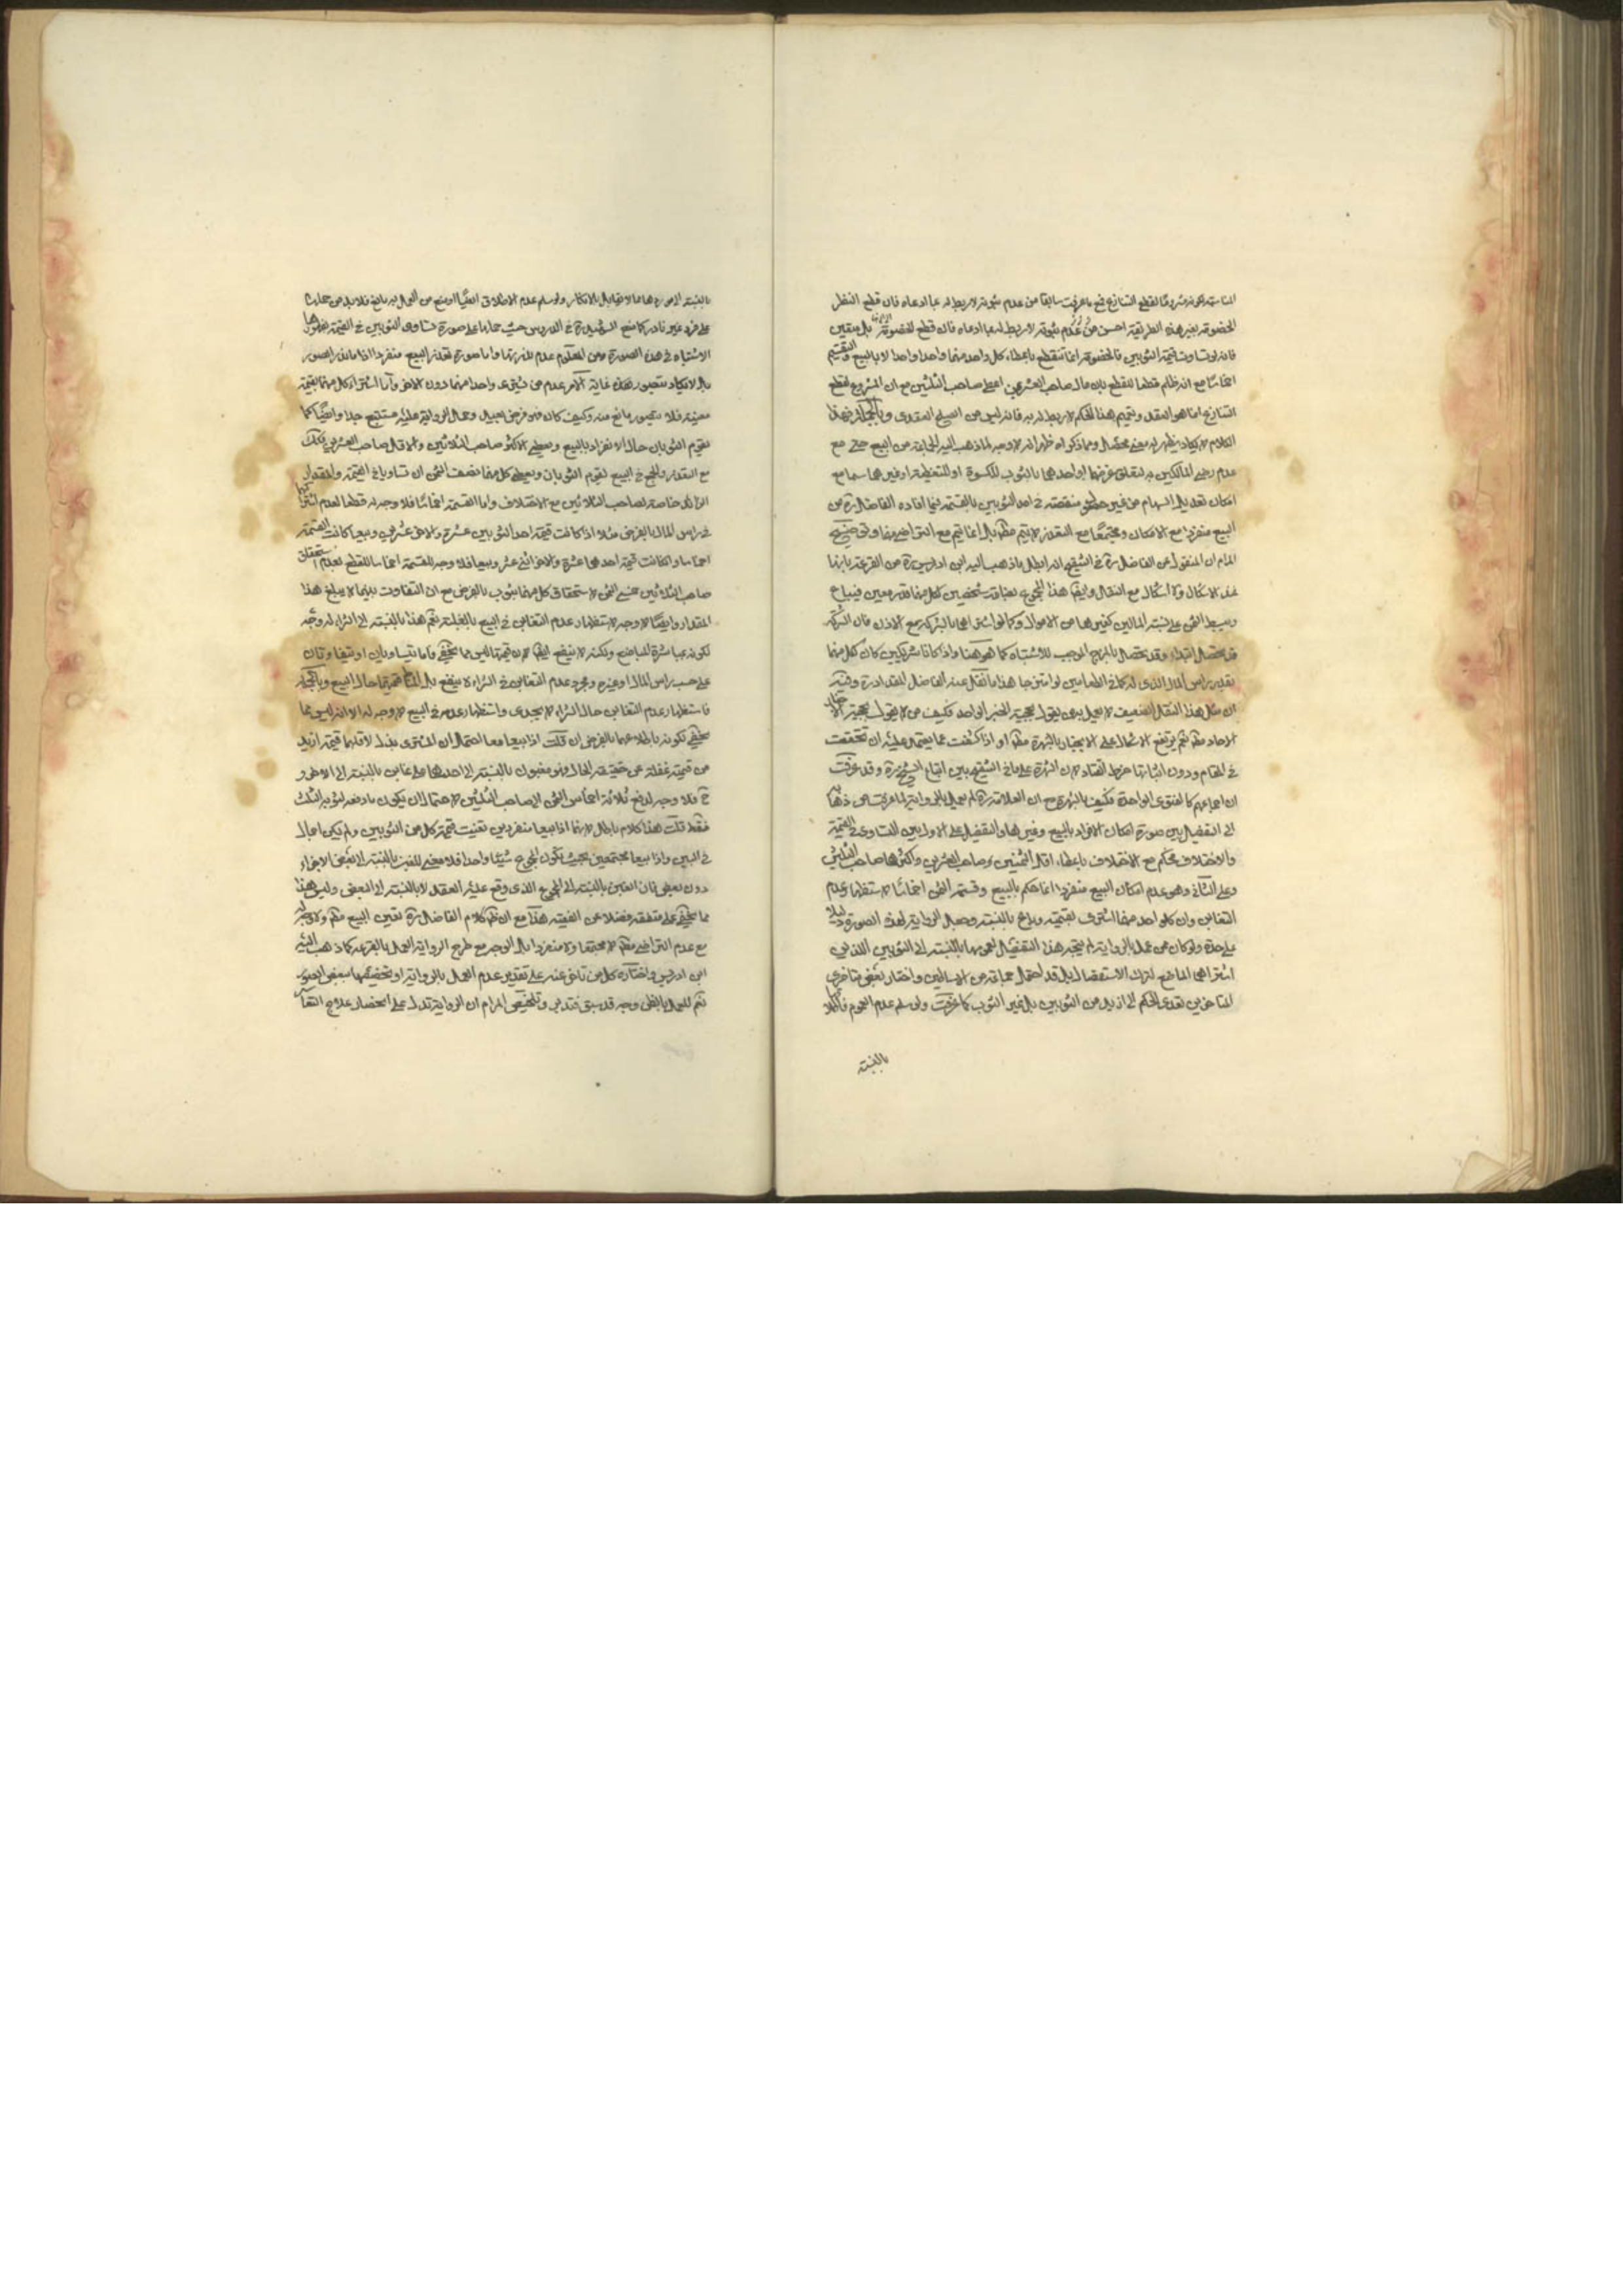 لقطع التنازع مع ما عرفت سابقا من عدم ثبوته لا ربط له بما ادعاه فان قطع النظر
الخصومة بغير هذه الطريقة احسن من عدم ثبوته لا ربط له بما ادعاه فان قطع الخصومة بل بيقين
فانه لو تساوت قيمة الثوبين فالخصومة انما تنقطع باعطاء كل واحد منهما واحدا واحدا لا بالبيع والتقسيم
اخماسا مع انه ظلم قطعا للقطع بان مال صاحب العشرين اعطي صاحب الثلثين مع ان المشروع لقطع
التنازع انما هو العقد وتتميم هذا الحكم لا ربط له به فانه ليس من الصلح العقدي وبالجملة فهذا
الكلام لا يكاد يظهر له معنى محصل ومما ذكر ظهر انه لا وجه لما ذهب اليه الجماعة من البيع حتى مع
عدم رضى المالكين به لتعلق غرضهما او احدهما بالثوب للكسوة او للتغطية او غيرهما سيما مع
امكان تعديل السهام من غير منقصة في احد الثوبين بالقسمة فيما افاده الفاضل ره من
البيع منفردا مع الامكان ومجتمعا مع التعذر لا يتم مطلقا بل انما يتم مع التراضي منهما وتوضيح
المرام ان المنقول عن الفاضل ره في التنقيح انه ابطل ما ذهب اليه ابن ادريس ره من القرعة بانها
عند الاشكال ولا اشكال مع النقل وايضا هذا المجموع بضاعة شخصين لكل منهما قدر معين فيباع
ويبسط الثمن على نسبة المالين كغيرهما من الاموال وكما لو اشتراهما بالشركة مع الاذن فان الشركة
قد تحصل ابتداء وقد تحصل بالمزج الموجب للاشتباه كما هو هنا واذا كانا شريكين كان لكل منهما
بقدر راس المال الذي له كما في الطعامين لو امتزجا هذا ما نقل عنه الفاضل المقداد ره وفيه
ان مثل هذا النقل الضعيف لا يعمل به من يقول بحجية الخبر الواحد فكيف من لا يقول بحجية الاخبار
الاحاد مطلقا نعم يرتفع الاشكال على الانجبار بالشهرة مطلقا او اذا كشفت عما يعتمد عليه ان تحققت
في المقام ودون اثباتها خرط القتاد لان الشهرة على ما في التنقيح بين اتباع الشيخ ره وقد عرفت
ان اجماعهم كالفتوى الواحدة فكيف بالشهرة مع ان العلامة ره لم يعمل بالرواية لما عرفت من ذهابه
الى التفصيل بين صورة امكان الافراد بالبيع وغيرها والتفصيل على الاول بين التساوي في القيمة
والاختلاف فحكم مع الاختلاف باعطاء اقل الثمنين لصاحب العشرين واكثرهما صاحب الثلثين
وعلى الثاني وهو عدم امكان البيع منفردا انما حكم بالبيع وقسمة الثمن اخماسا لاستظهار عدم
التغابن وان كل واحد منهما اشترى بقيمته وباع بالنسبة وجعل الرواية لهذه الصورة دليلا
على حدة ولو كان ممن عمل بالرواية لم يتجه هذا التفصيل لعمومها بالنسبة الى الثوبين اللذين
اشتراهما المباضع لترك الاستفصال بل قد احتمل جماعة من الاساطين واختار بعض متاخري
المتاخرين تعدي الحكم الى ازيد من الثوبين بل غير الثوب كما عرفت ولو سلم عدم العموم فلا اقل
بالنسبة
بالنسبة الى صورة هاهنا لا تقابل بالانكار ولو سلم عدم الاطلاق ايضا او منع من العمل به مانع فلا بد من حملها
على فرد غير نادر كما صنع الشهيد ره في الدروس حيث حملها على صورة تساوي الثوبين في القيمة
الاشتباه في هذه الصورة ومن المعلوم عدم ندرتها واما صورة تعذر البيع منفردا فنادر الصور
بل لا يكاد يتصور لهذه غاية الامر عدم من يشتري واحدا منهما دون الاخر واما اشتراء كل منهما بقيمة
معينة فلا يتصور مانع منه وكيف كان فهو فرض بعيد وحمل الرواية عليه مستقبح جدا وايضا كما
تقوم الثوبان حال الانفراد بالبيع ويعطى الاكثر صاحب الثلاثين والاقل صاحب العشرين فكذلك
مع التعذر والجمع في البيع تقوم الثوبان ويعطى كل منهما نصف الثمن ان تساويا في القيمة والمقدار
الزائد خاصة لصاحب الثلاثين مع الاختلاف واما القسمة اخماسا فلا وجه له قطعا لعدم اشتراكهما
في راس المال بالفرض مثلا اذا كانت قيمة احد الثوبين عشرة والاخر عشرين وبيعا كانت القسمة
اخماسا واذا كانت قيمة احدهما عشرة والاخر اثني عشر وبيعا فلا وجه للقسمة اخماسا للقطع بعدم استحقاق
صاحب الثلاثين خمسي الثمن لاستحقاق كل منهما بثوب بالفرض مع ان التفاوت بينهما لا يبلغ هذا
المقدار وايضا لا وجه لاستظهار عدم التغابن في البيع بالغلبة نعم هذا بالنسبة الى الشراء له وجه
لكونه مباشرة المباضع ولكنه لا ينفع ايضا لان قيمتهما ليس مما يخفى فاما يتساويان او يتفاوتان
على حسب راس المال او غيره ومجرد عدم التغابن في الشراء لا ينفع بل المناط قيمتهما حال البيع وبالجملة
فاستظهار عدم التغابن حال الشراء لا يجدي واستظهار عدمه في البيع لا وجه له الا انه ليس مما
يخفى لكونه باطلاعهما بالفرض ان قلت اذا بيعا معا احتمال ان المشتري بذل لاقلهما قيمة ازيد
من قيمته غفلة عن حقيقة الحال فهو مغبون بالنسبة الى احدهما على غابن بالنسبة الى الاخر و
ح فلا وجه لدفع ثلاثة اخماس الثمن الى صاحب الثلثين لاحتمال ان يكون ما دفعه لثوبه الثلث
فقط قلت هذا كلام باطل لانهما اذا بيعا منفردين تعينت قيمة كل من الثوبين ولم يكن اجمال
في البين واذا بيعا مجتمعين بحيث يكون المجموع شيئا واحدا فلا معنى للغبن بالنسبة الى بعض الاجزاء
دون بعض فان الغبن بالنسبة الى المجموع الذي وقع عليه العقد لا بالنسبة الى البعض وليس هذا
مما يخفى على متفقه فضلا عن الفقيه هذا مع ان ظاهر كلام الفاضل ره تعين البيع مطلقا ولا وجه له
مع عدم التراضي مطلقا لا مجتمعا ولا منفردا بل الوجه مع طرح الرواية العمل بالقرعة كما ذهب اليه
ابن ادريس واختاره كل من تاخر عنه على تقدير عدم العمل بالرواية او تخصيصها ببعض الصور
نعم للعمل بالظن وجه قد سبق فتدبر وتلخيص المرام ان الرواية تدل على انحصار علاج